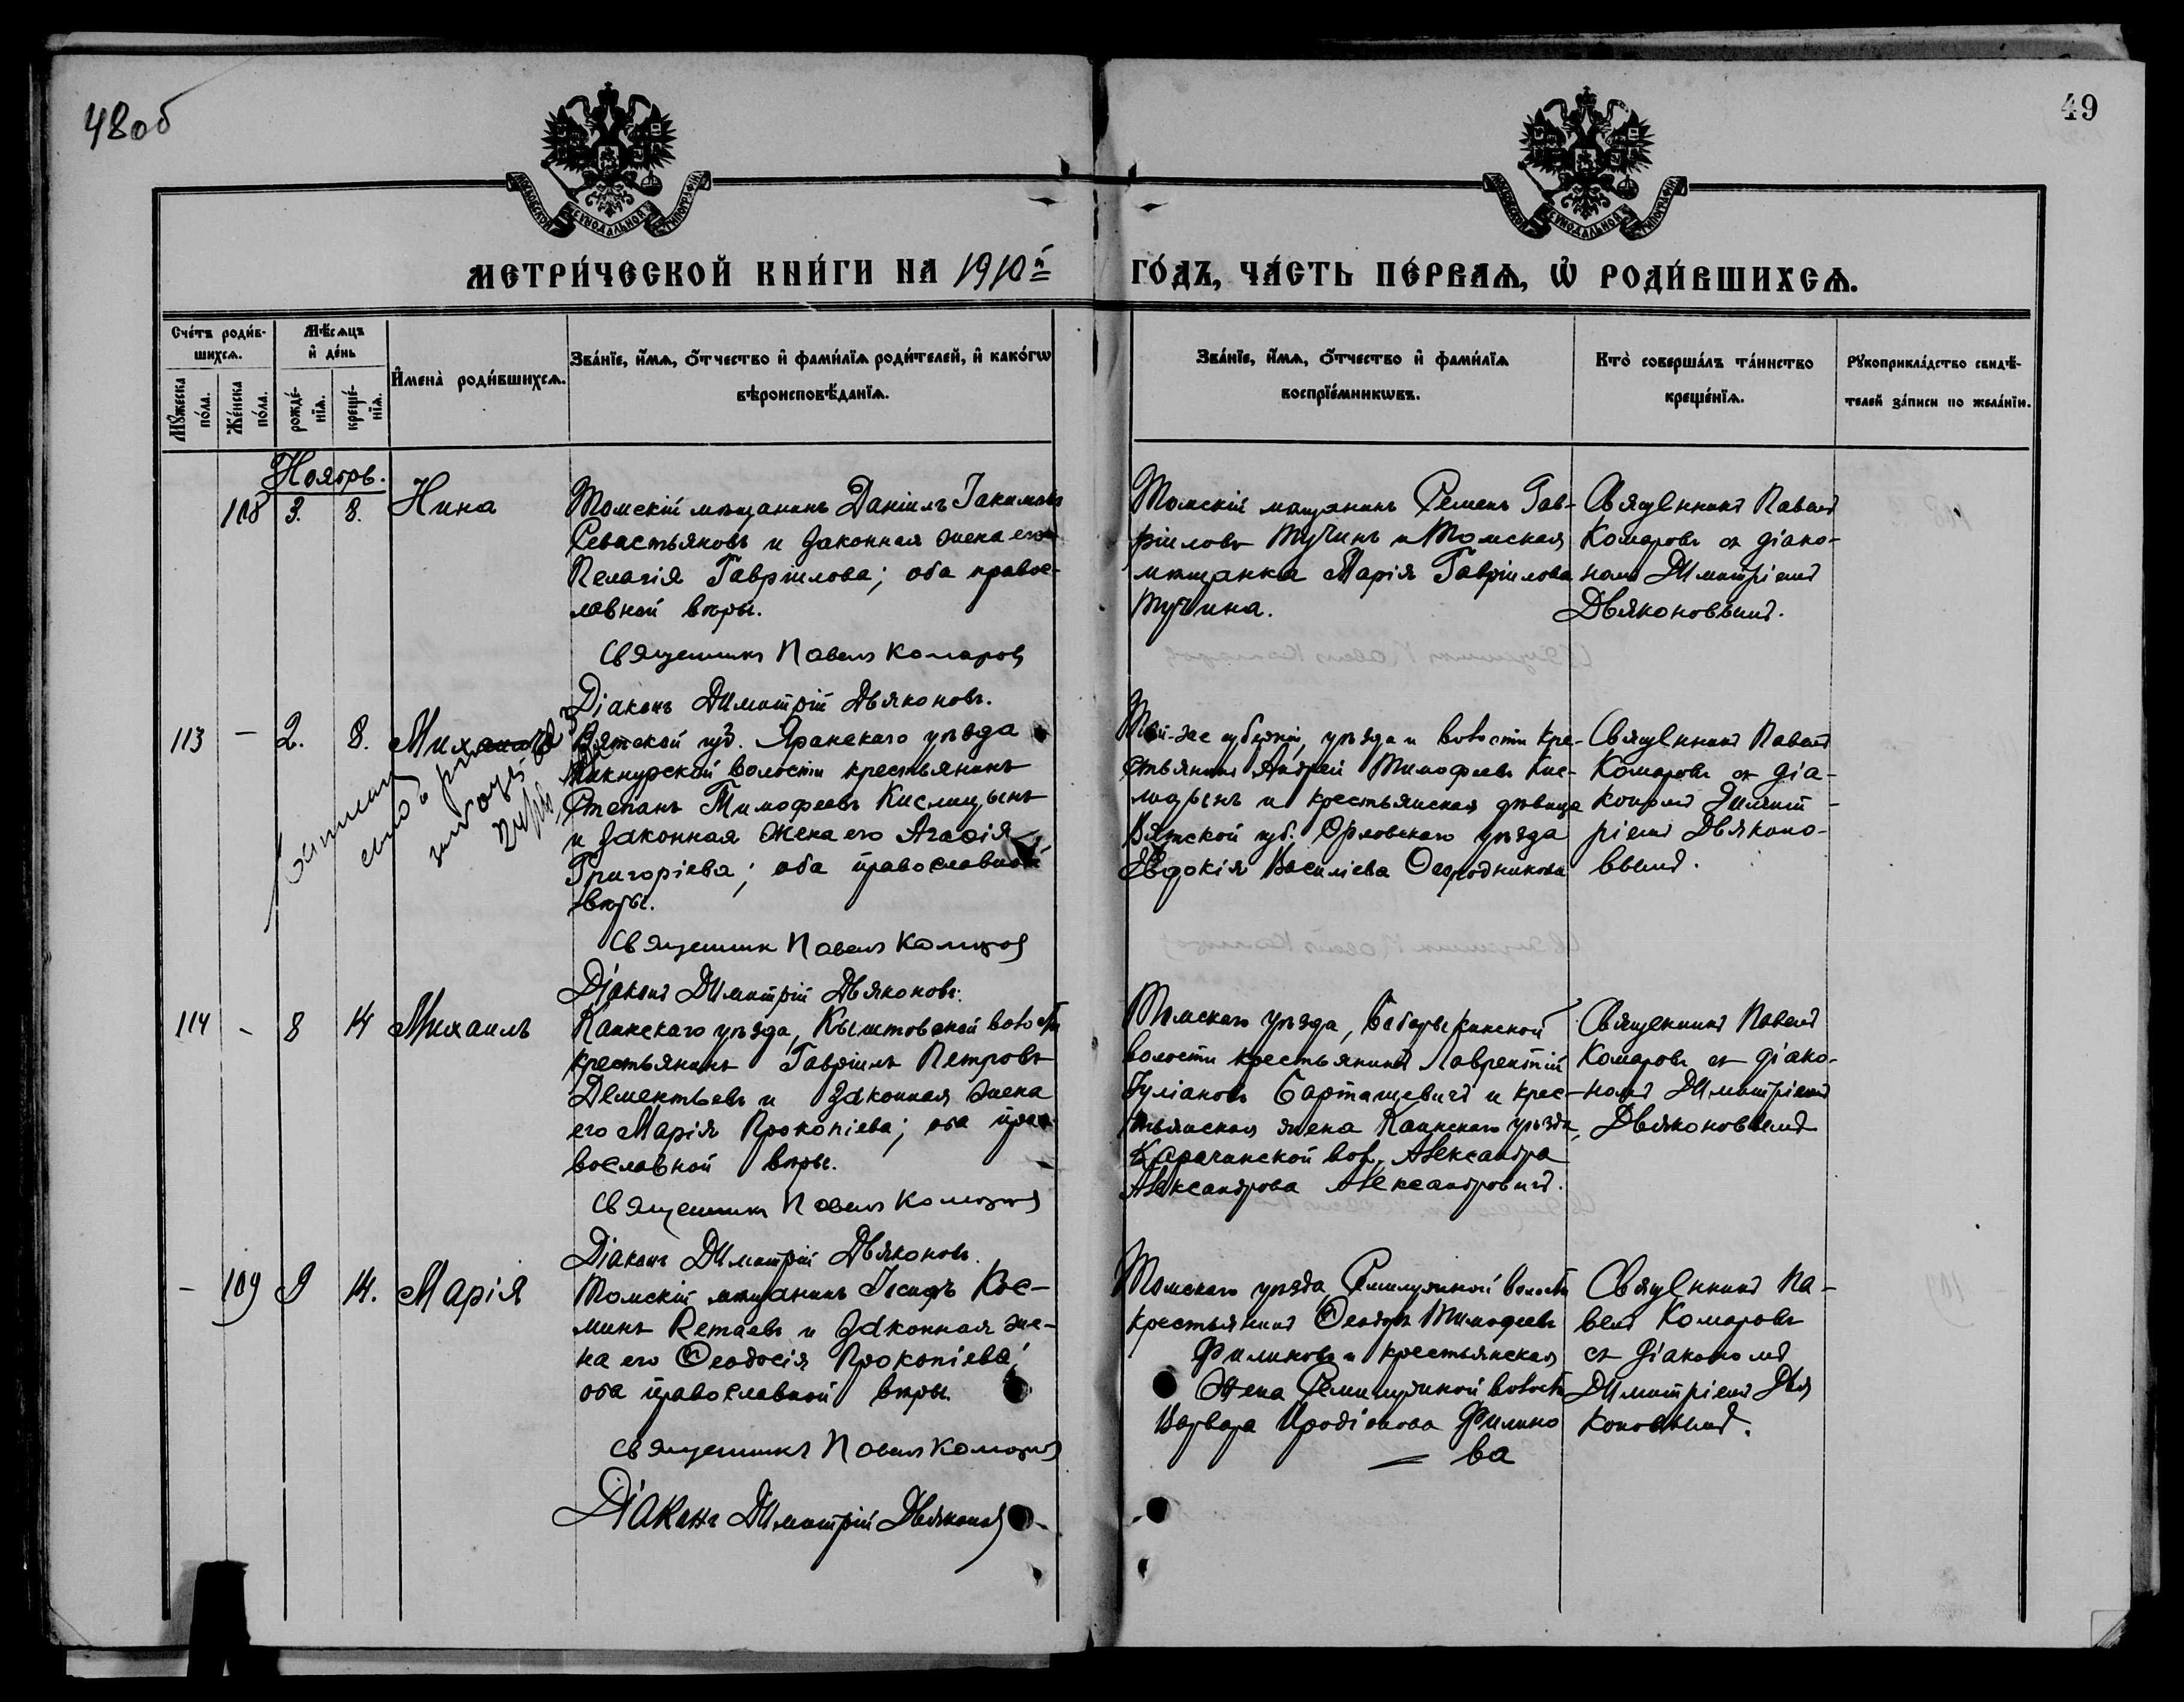 48об
49
МОСКОВСКОЙ СѴНОДАЛЬНОЙ ТИПОГРАФІИ
МОСКОВСКОЙ СѴНОДАЛЬНОЙ ТИПОГРАФІИ
МЕТРИ́ЧЕСКОЙ КНИ́ГИ НА 1910й
ГО́ДЪ, ЧА́СТЬ ПЕ́РВАѦ, Ѡ҆ РОДИ́ВШИХСѦ.
Сче́тъ роди́в-
шихсѧ.
Мѣ́сѧцъ
и҆ де́нь
Мꙋ́жеска
по́ла.
Же́нска
по́ла.
рожде́-
нїѧ.
креще́-
нїѧ.
И҆мена̀ роди́вшихсѧ.
Зва́нїе, и҆́мѧ, ѻ҆́тчество и҆ фами́лїѧ роди́телей, и҆ како́гѡ
вѣроисповѣ́данїѧ.
Зва́нїе, и҆́мѧ, ѻ҆́тчество и҆ фами́лїѧ
воспрїе́мникѡвъ.
Кто̀ соверша́лъ та́инство
креще́нїѧ.
Рꙋкоприкла́дство свидѣ́-
телей за́писи по жела́нїю.
Ноябрь.
108 3. 8. Нина
Томскій мѣщанинъ Даніилъ Іакимовъ
Севастьяновъ и законная жена его
Пелагія Гавріилова; оба правос-
лавной вѣры.
Священникъ Павелъ Комаровъ
Діаконъ Димитрій Дьяконовъ.
Томскій мѣщанинъ Семенъ Гав-
ріиловъ Тучинъ и Томская
мѣщанка Марія Гавріилова
Тучина.
Священникъ Павелъ
Комаровъ съ діако-
номъ Димитріемъ
Дьяконовымъ.
113 — 2. 8. Михаилъ
Вятской губ. Яранскаго уѣзда
волости крестьянинъ
Степанъ Тимофеевъ Кислицынъ
и законная жена его Агафія
Григоріева; оба православной
вѣры.
Священникъ Павелъ Комаровъ
Діаконъ Димитрій Дьяконовъ.
Той-же губерніи, уѣзда и волости кре-
стьянинъ Андрей Тимофеевъ Кис-
лицынъ и крестьянская дѣвица
Вятской губ. Орловскаго уѣзда
Евдокія Василіева Огородникова
Священникъ Павелъ
Комаровъ съ діа-
кономъ Димит-
ріемъ Дьяконо-
вымъ.
114 - 8 14 Михаилъ
Каинскаго уѣзда, Кыштовской волости
крестьянинъ Гавріилъ Петровъ
Дементьевъ и законная жена
его Марія Прокопіева; оба пра-
вославной вѣры.
Священникъ Павелъ Комаровъ
Діаконъ Димитрій Дьяконовъ.
Томскаго уѣзда, Бабарыкинской
волости крестьянинъ Лаврентій
Іуліановъ Барташевичъ и крес-
тьянская жена Каинскаго уѣзда,
Карачинской вол. Александра
Александрова Александровичъ.
Священникъ Павелъ
Комаровъ съ діако-
номъ Димитріемъ
Дьяконовымъ
- 109 9 14. Марія
Томскій мѣщанинъ Іосифъ Кос-
минъ Ретаевъ и законная же-
на его Ѳеодосія Прокопіева;
оба православной вѣры.
Священникъ Павелъ Комаровъ
Діаконъ Димитрій Дьяконовъ
Томскаго уѣзда, Семилужной волости
крестьянинъ Ѳеодоръ Тимофеевъ
Филиновъ и крестьянская
жена Семилужной волости
Варвара Иродіонова Филино
= ва
Священникъ Па-
велъ Комаровъ
съ діакономъ
Димитріемъ Дья
коновымъ.